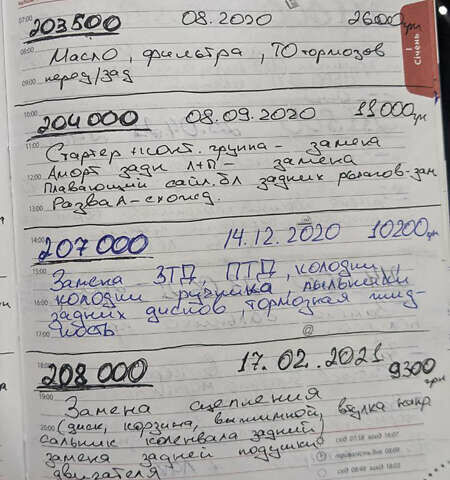 07:00
203500 08.2020 26000 грн
1
Січень
Масло, фильтра, ТО тормозов
09:00 перед/зад
10:00
204 000 08.09.2020 11000 грн
11:00
Стартер +конт. группа - замена
Аморт задн Л+П - замена
Плавающий сайл.бл задних рычагов-зам
13:00 Развал-схожд.
14:00
207 000 14.12.2020 10200 грн
15:00
Замена ЗТД, ПТД, колодки
колодки ручника, пыльники
задних дисков, тормозная жид-
17:00 кость
@
208 000 17.02.2021 9300 грн
19:00
Замена сцепления
20:00 (диск, корзина, выжимной, втулка напр
сальник коленвала задний)
замена задней подушки
двигателя